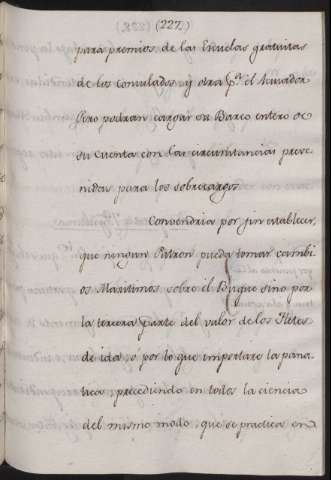 (222)
para premios, de las Escuelas gratuitas
de los Consulados y otra p.ª el Acusador
Pero podran cargar su Barco entero de
su cuenta con las circunstancias preve-
nidas para los sobrecargos
Convendria por fin establecer,
que ningun Patron pueda tomar cambi
os Maritimos sobre el Buque sino por
la tercera parte del valor de los Fletes
de ida, o por lo que importare la pana-
tica, precediendo en todos la ciencia
del mismo modo, que se practica en